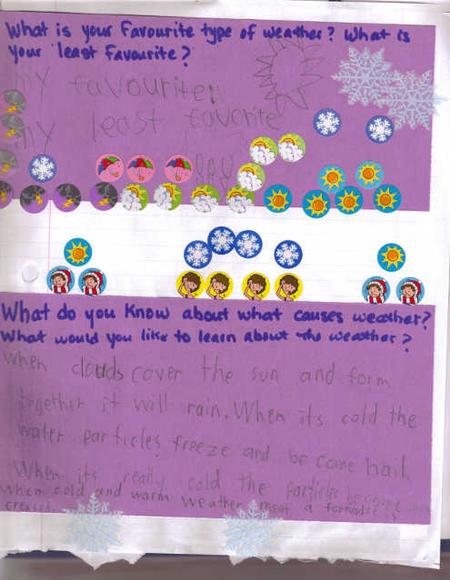 What is your favourite type of weather? What is
your least favourite?
my favourite:
my least favorite
What do you know about what causes weather?
What would you like to learn about the weather?
When clouds cover the sun and form
together it will rain. When its cold the
water particles freeze and be come hail.
When its really cold the particles become
When cold and warm weather meat a tornado is